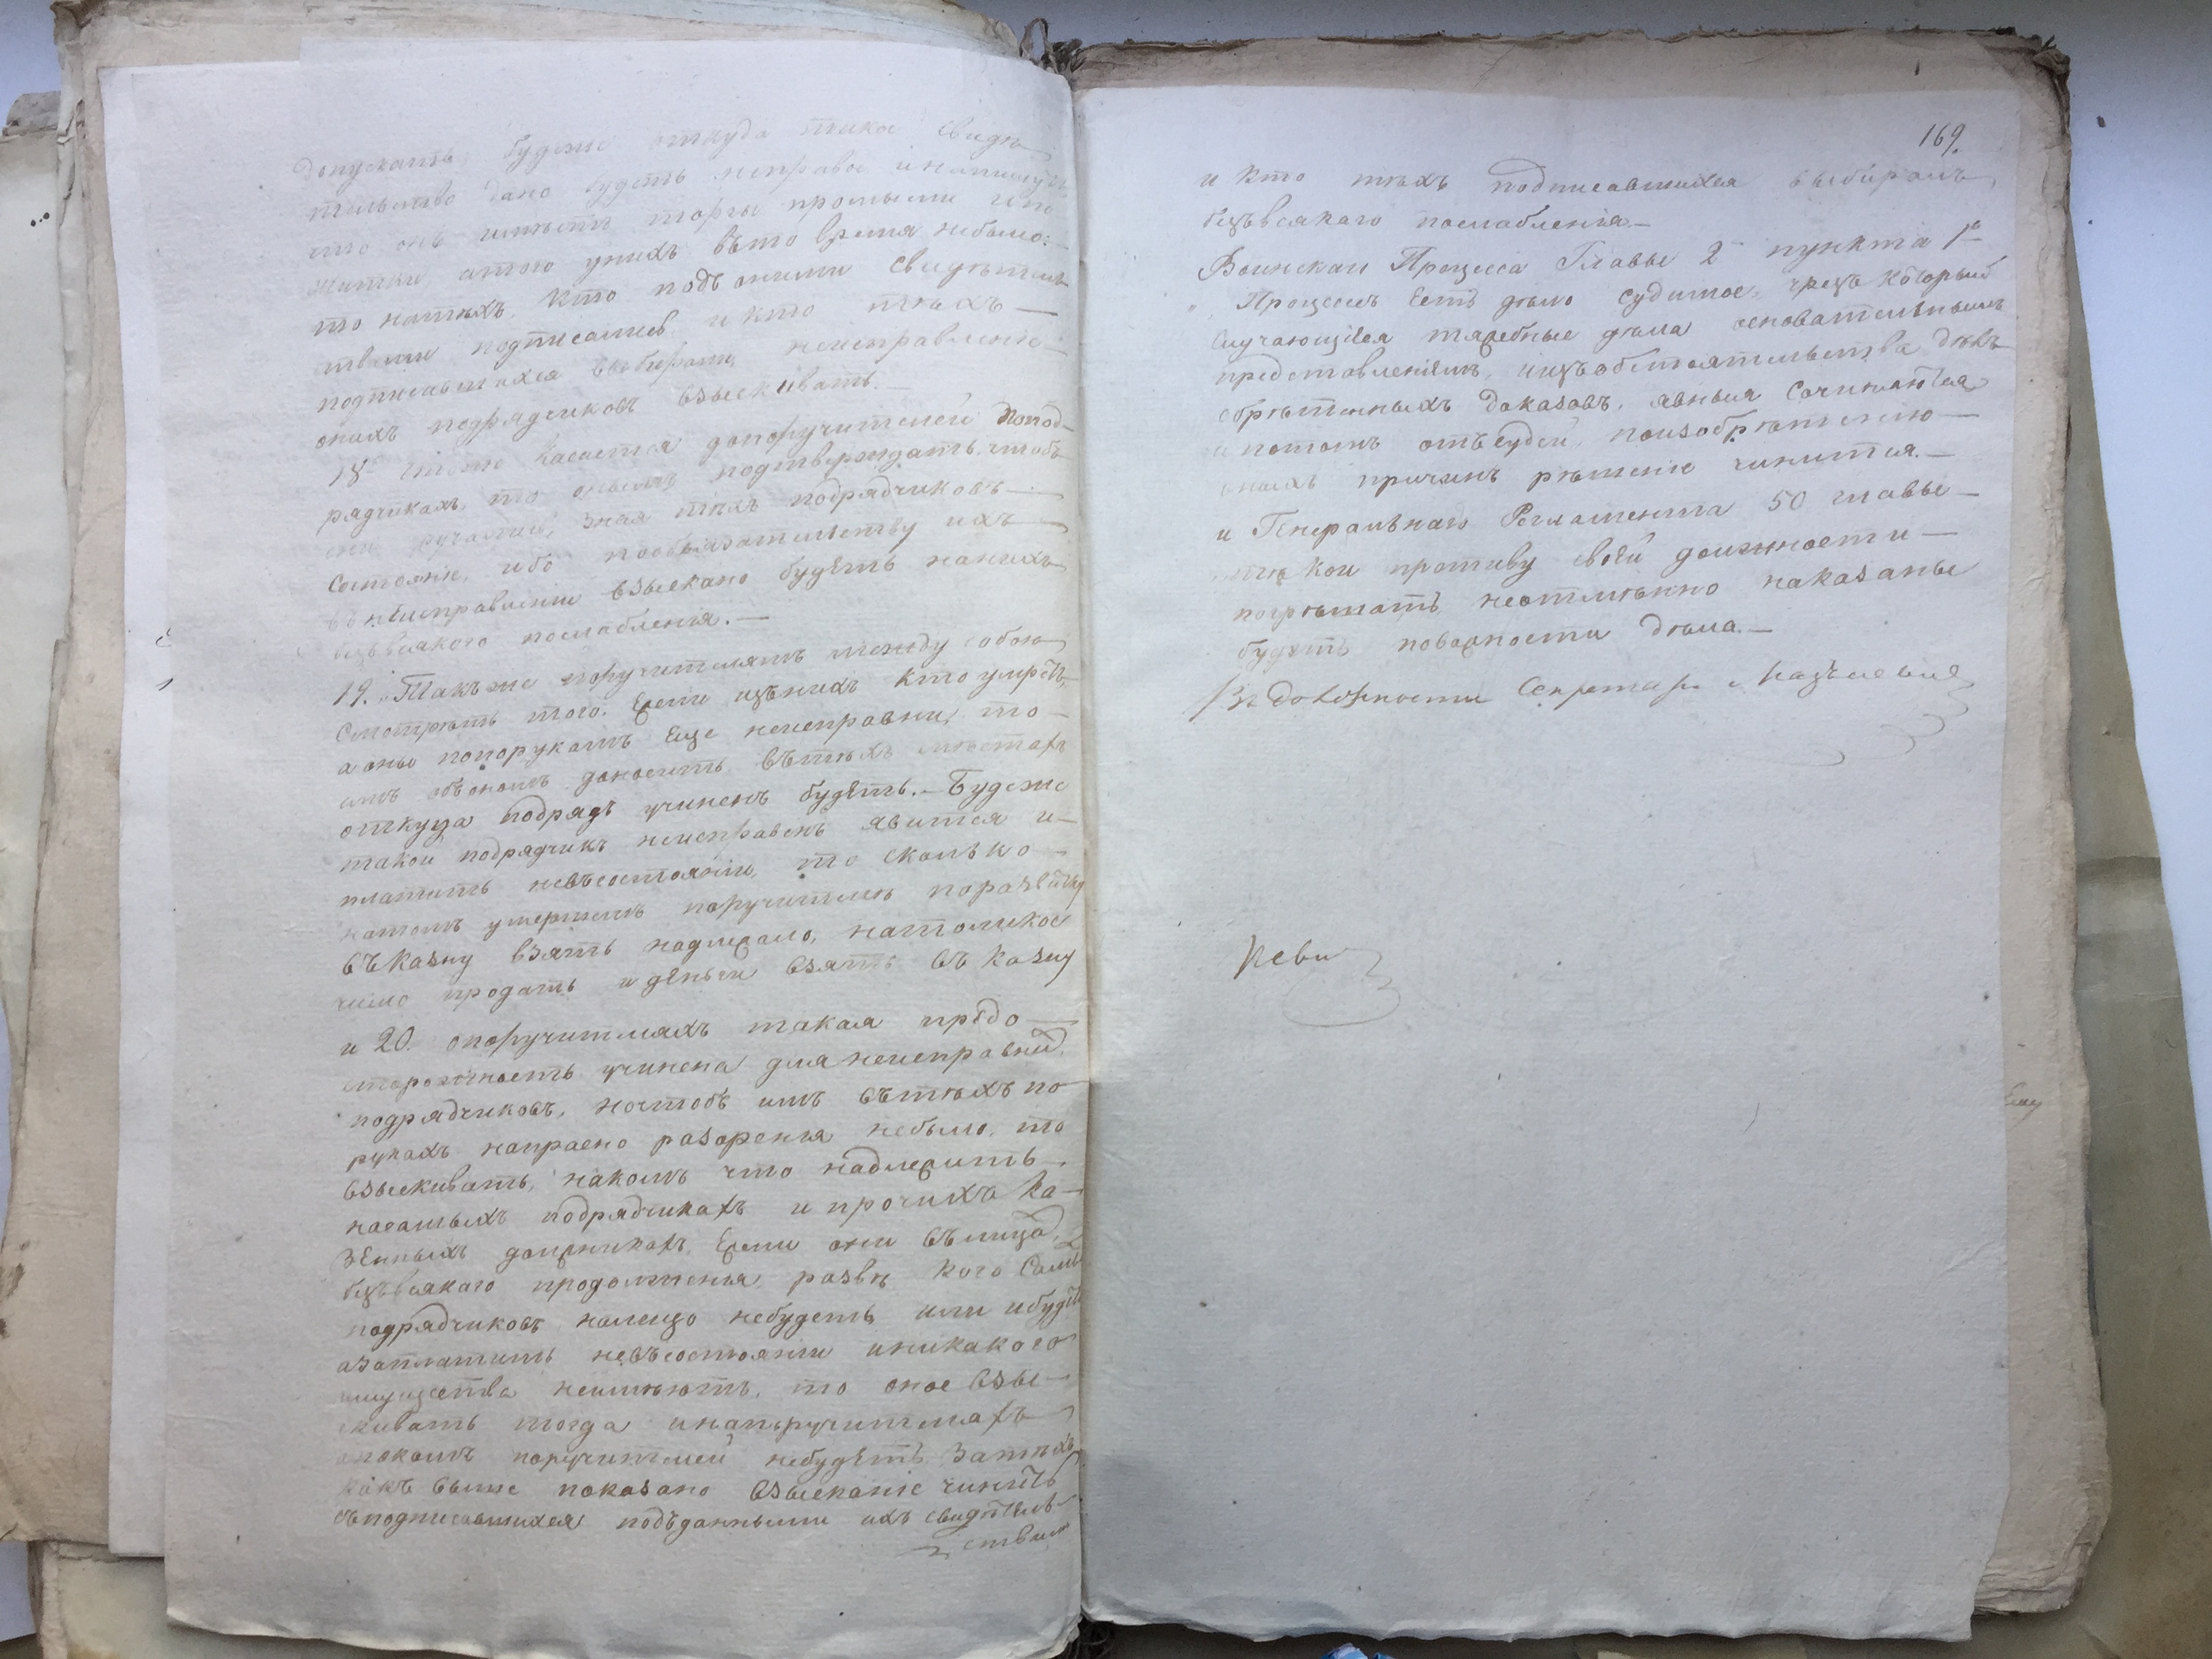 допускать, буде же откуда така свидѣ
тельство дано будетъ неправое и напишутъ
что онъ имѣетъ торги промыслы и по
житки, а того у нихъ въ то время небыло:
то на тѣхъ, кто подъ оными свидѣтель
ствами подписались и кто тѣхъ
подписавшихся выбирали, неисправленіе
оныхъ подрядчиковъ взыскивать.
18 Чтоже касается до поручителей по под-
рядчикахъ, то онымъ подтверждать, чтобъ
они ручались, зная тѣхъ подрядчиковъ
состояніе, ибо по обязательству ихъ
въ неисправленіи взыскано будетъ на нихъ
безъ всякаго послабленія.
19. Такъ же поручителямъ между собою
смотрѣть того. Ежели изъ нихъ кто умретъ,
а оные по порукамъ еще неисправны, то
имъ объ ономъ доносить въ тѣхъ мѣстахъ
откуда подрядъ учиненъ будетъ. Буде же
такой подрядчикъ неисправенъ явится и
платить не въ состояніи, то сколько
на томъ умершемъ поручителѣ по развытку
въ казну взять надлежало, на толикое
число продать и деньги взять въ казну
и 20. о поручителяхъ такая предо
сторожность учинена для неисправныхъ
подрядчиковъ, но чтобъ имъ въ тѣхъ по
рукахъ напрасно разоренія небыло, то
взыскивать, на комъ что надлежитъ
на самыхъ подрядчикахъ и прочихъ ка
зенныхъ должникахъ, ежели они въ лицахъ,
безъ всякаго продолженія, развѣ кого самихъ
подрядчиковъ на лицо небудетъ или и будутъ
а заплатить не въ состояніи и никакого
имущества неимѣютъ, то оное взы
скивать тогда и на поручителяхъ
а по комъ поручителей небудетъ за тѣхъ
какъ выше показано взысканіе чинить
съ подписавшихся подъ данными ихъ свидѣтель
ствами
169.
и кто тѣхъ подписавшихся выбиралъ,
безъ всякаго послабленія.
Воинскаи Процесса Главы 2 пункта 1го
Процессъ есть дѣло судимое, чрезъ который
случающіеся тяжебные дѣла основательнымъ
представленіемъ, и изъ обстоятельства дѣлъ
обрѣтенныхъ доказовъ, явныя сочиняются
и потомъ отъ судей, по изобрѣтенію
оныхъ причинъ рѣшеніе чинится.
и Генеральнаго Регламента 50 главы
тѣ кои противу своей должности
погрѣшатъ, неотмѣнно наказаны
будутъ по важности дѣла.
Въ должности Секретаря